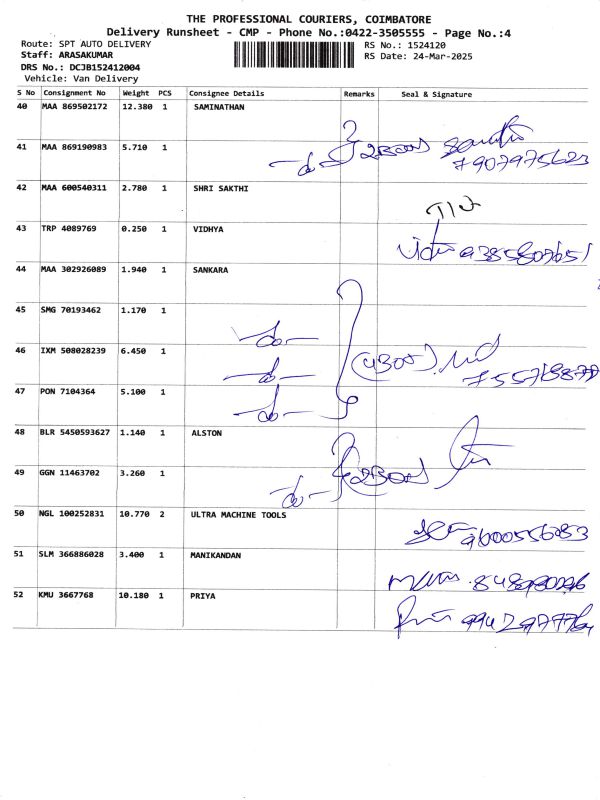 THE PROFESSIONAL COURIERS, COIMBATORE
Delivery Runsheet - CMP - Phone No.:0422-3505555 - Page No.:4
Route: SPT AUTO DELIVERY
RS No.: 1524120
Staff: ARASAKUMAR
RS Date: 24-Mar-2025
DRS No.: DCJB152412004
Vehicle: Van Delivery
S No Consignment No Weight PCS Consignee Details Remarks Seal & Signature
40 MAA 869502172 12.380 1 SAMINATHAN
41 MAA 869190983 5.710 1
-do- 2Box
7907975623
42 MAA 600540311 2.780 1 SHRI SAKTHI
43 TRP 4089769 0.250 1 VIDHYA
9385807651
44 MAA 302926089 1.940 1 SANKARA
45 SMG 70193462 1.170 1
-do-
46 IXM 508028239 6.450 1
-do- (4Box)
47 PON 7104364 5.100 1
-do-
48 BLR 5450593627 1.140 1 ALSTON
49 GGN 11463702 3.260 1
-do- 2Box
50 NGL 100252831 10.770 2 ULTRA MACHINE TOOLS
9600556083
51 SLM 366886028 3.400 1 MANIKANDAN
52 KMU 3667768 10.180 1 PRIYA